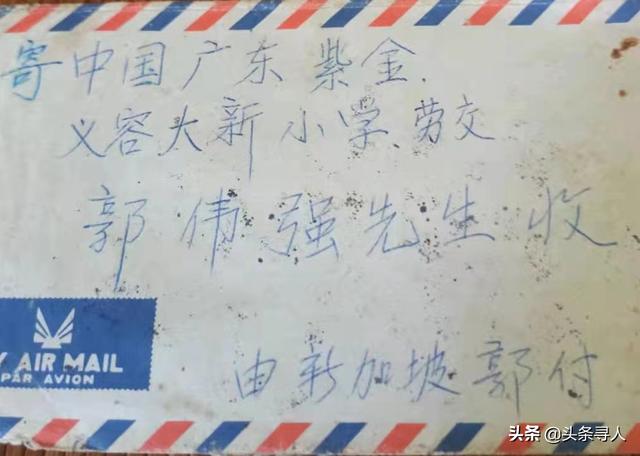 寄中国广东紫金.
义容大新小学劳交
郭伟强先生收
Y AIR MAIL
PAR AVION
由新加坡郭付
头条 @头条寻人